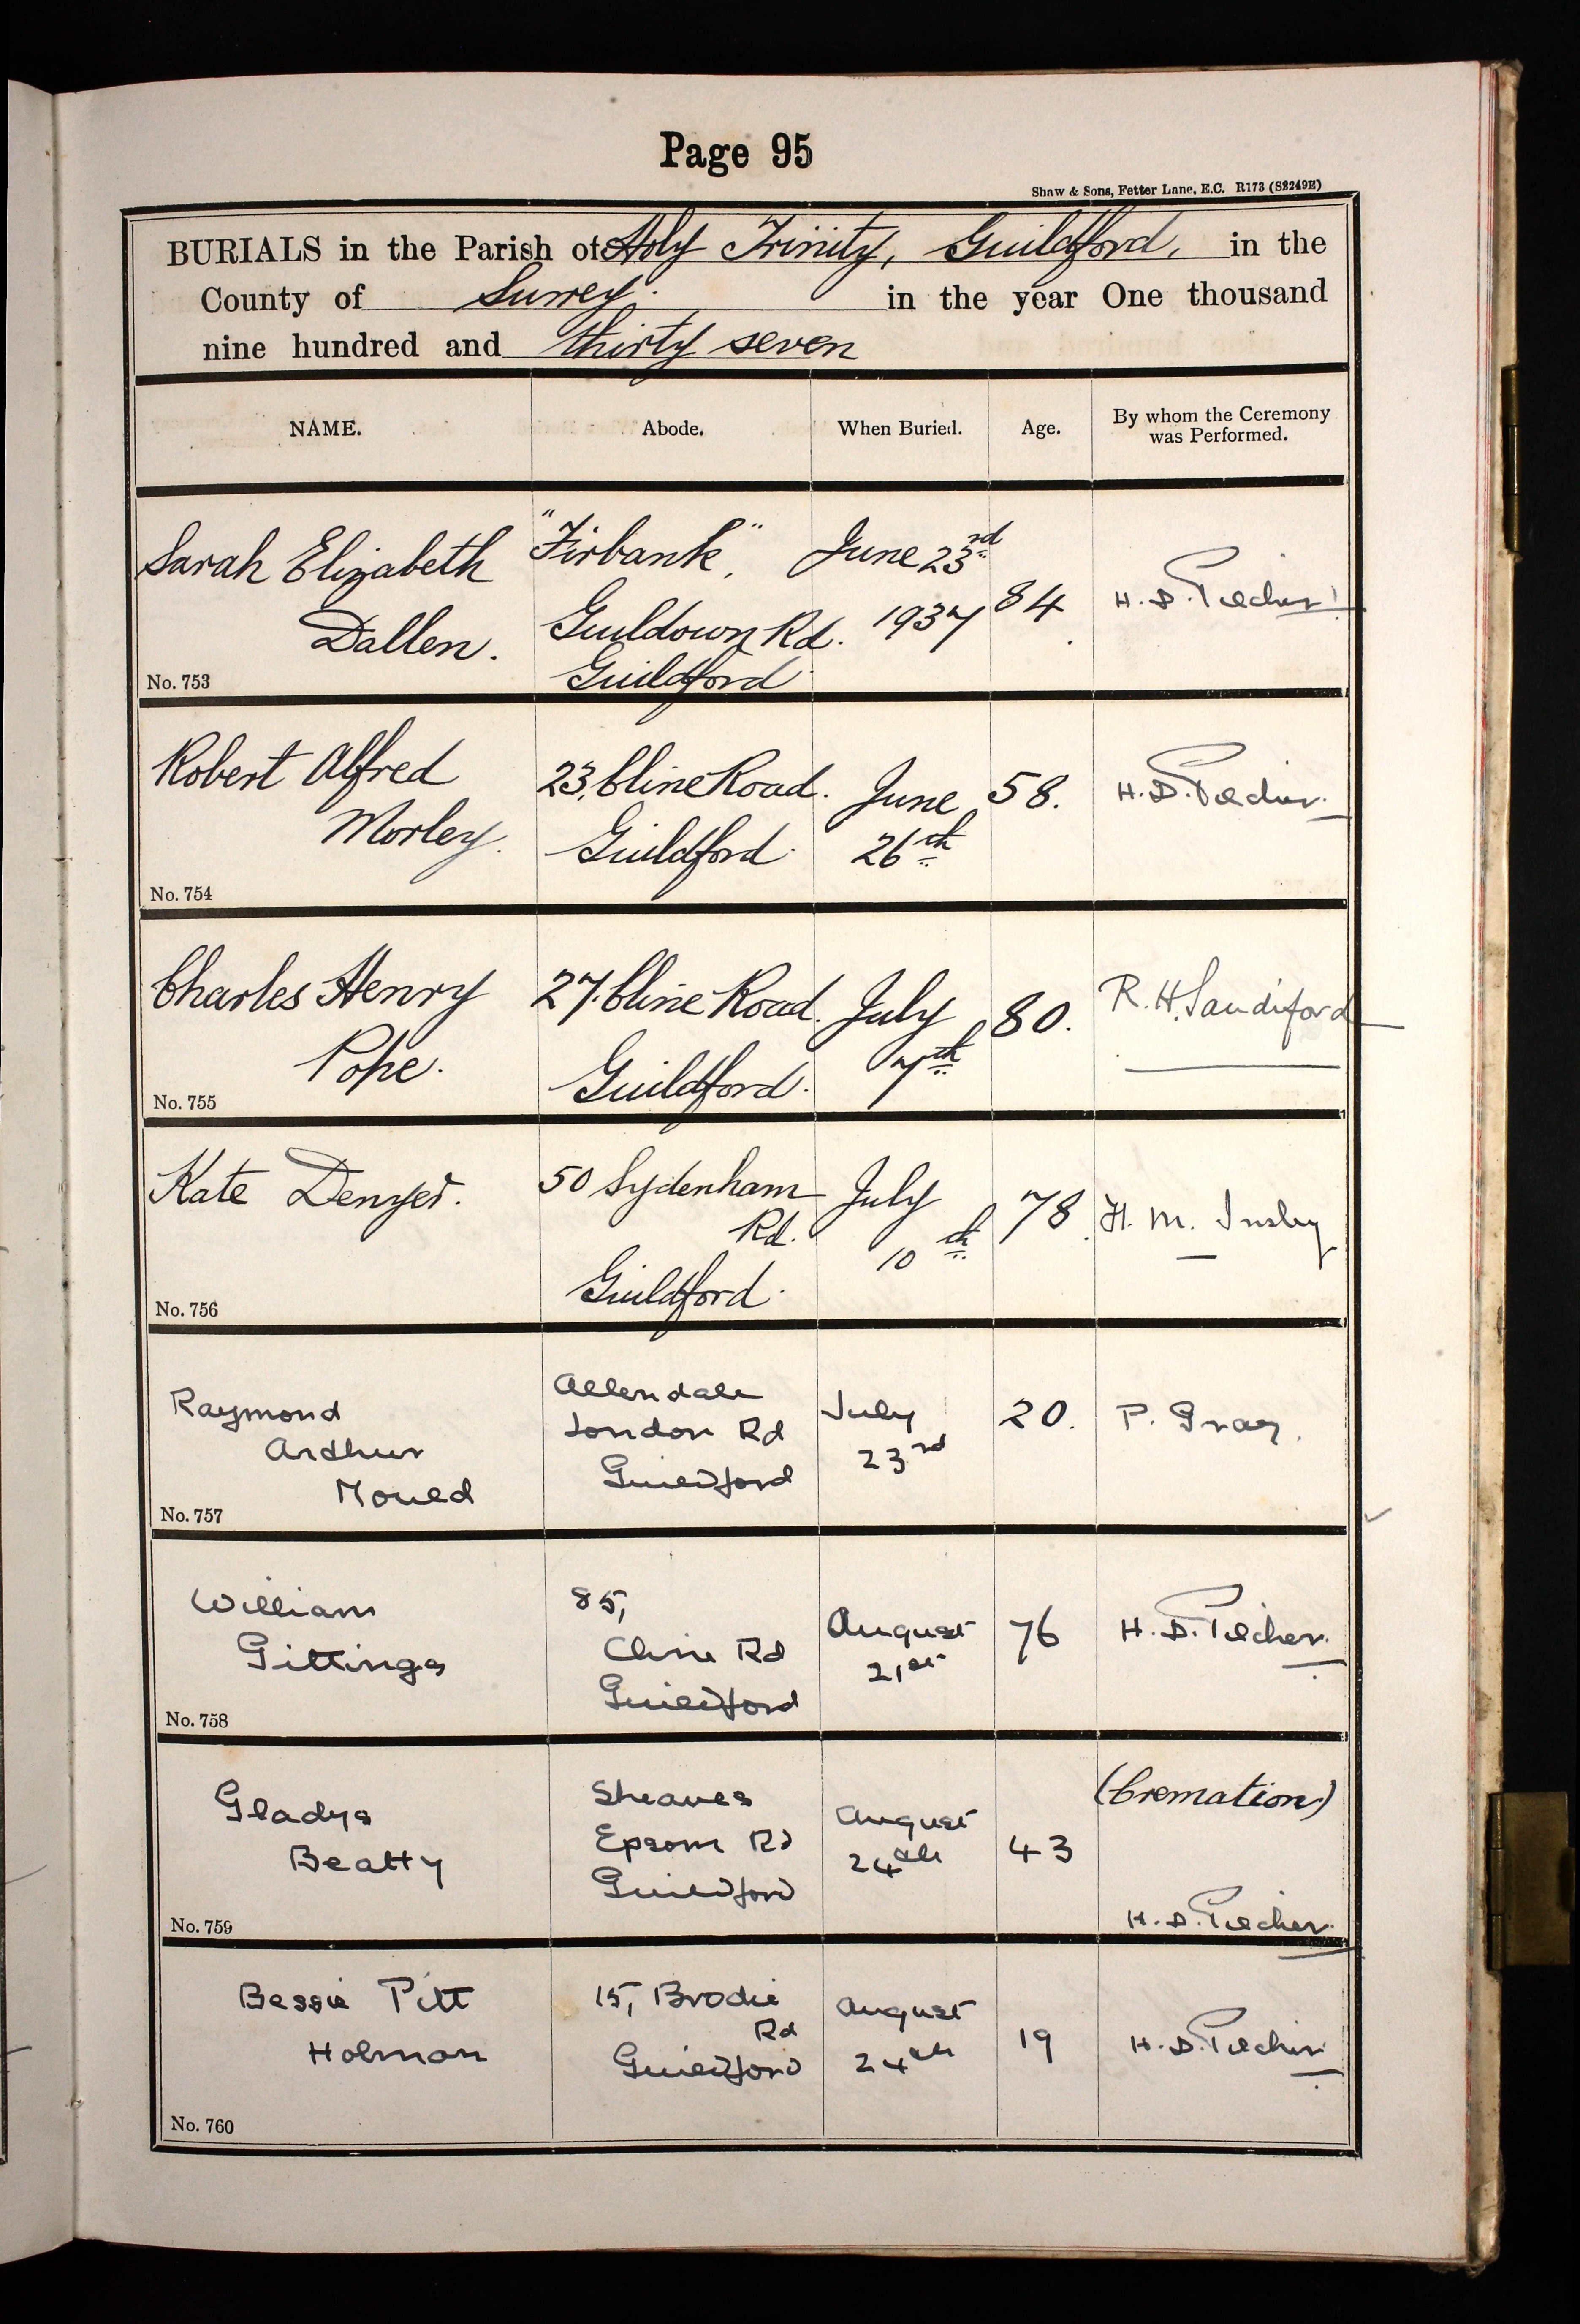 Page 95
Shaw & Sons, Fetter Lane, E.C. R173 (S2249E)
BURIALS in the Parish of Holy Trinity, Guildford, in the
County of Surrey. in the year One thousand
nine hundred and thirty seven
NAME. Abode. When Buried. Age. By whom the Ceremony was Performed.
Sarah Elizabeth "Firbank", June 23rd
Dallen. Guildown Rd. 1937 84. H. D. Pilcher.
No. 753 Guildford.
Robert Alfred 23, Cline Road. June 58. H. D. Pilcher.
Morley. Guildford. 26th
No. 754
Charles Henry 27. Cline Road. July 80. R. H. Sandiford
Pope. Guildford. 7th
No. 755
Kate Denyer. 50 Sydenham July 78. H. M. Insley
Rd. 10th
Guildford.
No. 756
Raymond Allendale July 20. P. Gray.
Arthur London Rd 23rd
Mould Guildford
No. 757
William 85, August 76 H. D. Pilcher.
Gittings Cline Rd 21st
Guildford
No. 758
Gladys Sheaves August 43 (Cremation)
Beatty Epsom Rd 24th
Guildford
No. 759 H. D. Pilcher.
Bessie Pitt 15, Brodie August 19 H. D. Pilcher.
Holman Rd 24th
Guildford
No. 760